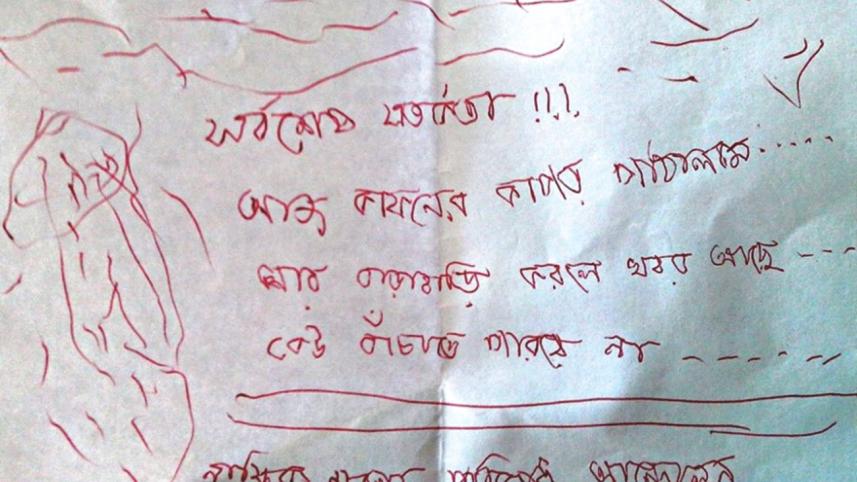 সর্বশেষ সতর্কতা !!!
আজ কাফনের কাপড় পাঠালাম.....
আর বাড়াবাড়ি করলে খবর আছে ---
কেউ বাঁচাতে পারবে না -----